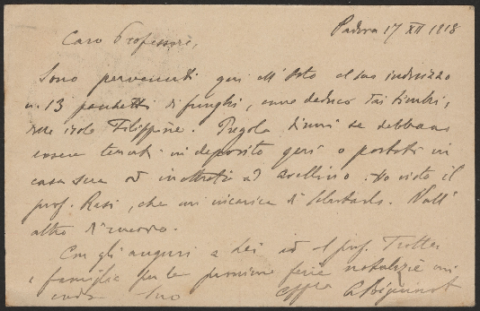 Padova 17 XII 1918
Caro Professore,
Sono pervenuti qui all'Orto al suo indirizzo
n. 13 pacchetti di funghi, come deduco dai timbri,
dalle isole Filippine. Pregola dirmi se debbano
essere tenuti in deposito qui o portati in
casa sua od inoltrati ad Avellino. Ho visto il
prof. Rasi, che mi incarica di salutarlo. Null'
altro di nuovo.
Con gli auguri a Lei ed al prof. Trotter
e famiglia per le prossime ferie natalizie mi
creda Suo aff.mo A. Béguinot